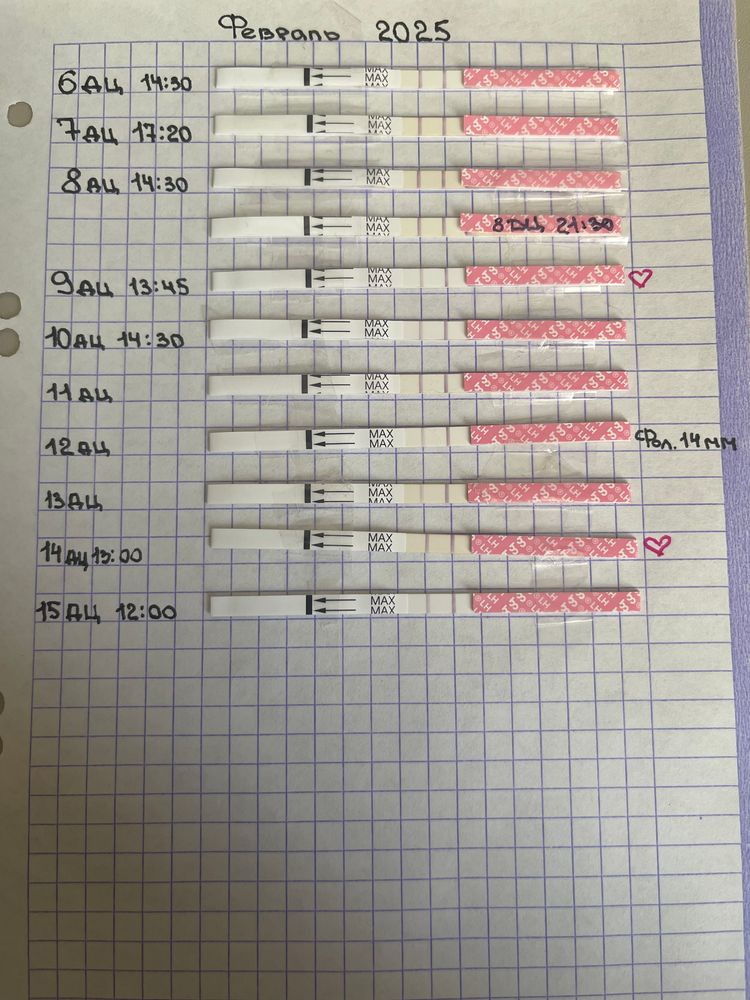 Февраль 2025
6 ДЦ 14:30
MAX
MAX
7 ДЦ 17:20
MAX
MAX
8 ДЦ 14:30
MAX
MAX
MAX
MAX
8 ДЦ 21:30
9 ДЦ 13:45
MAX
MAX
10 ДЦ 14:30
MAX
MAX
11 ДЦ
MAX
MAX
12 ДЦ
MAX
MAX
Фол. 14 мм
13 ДЦ
MAX
MAX
14 ДЦ 13:00
MAX
MAX
15 ДЦ 12:00
MAX
MAX